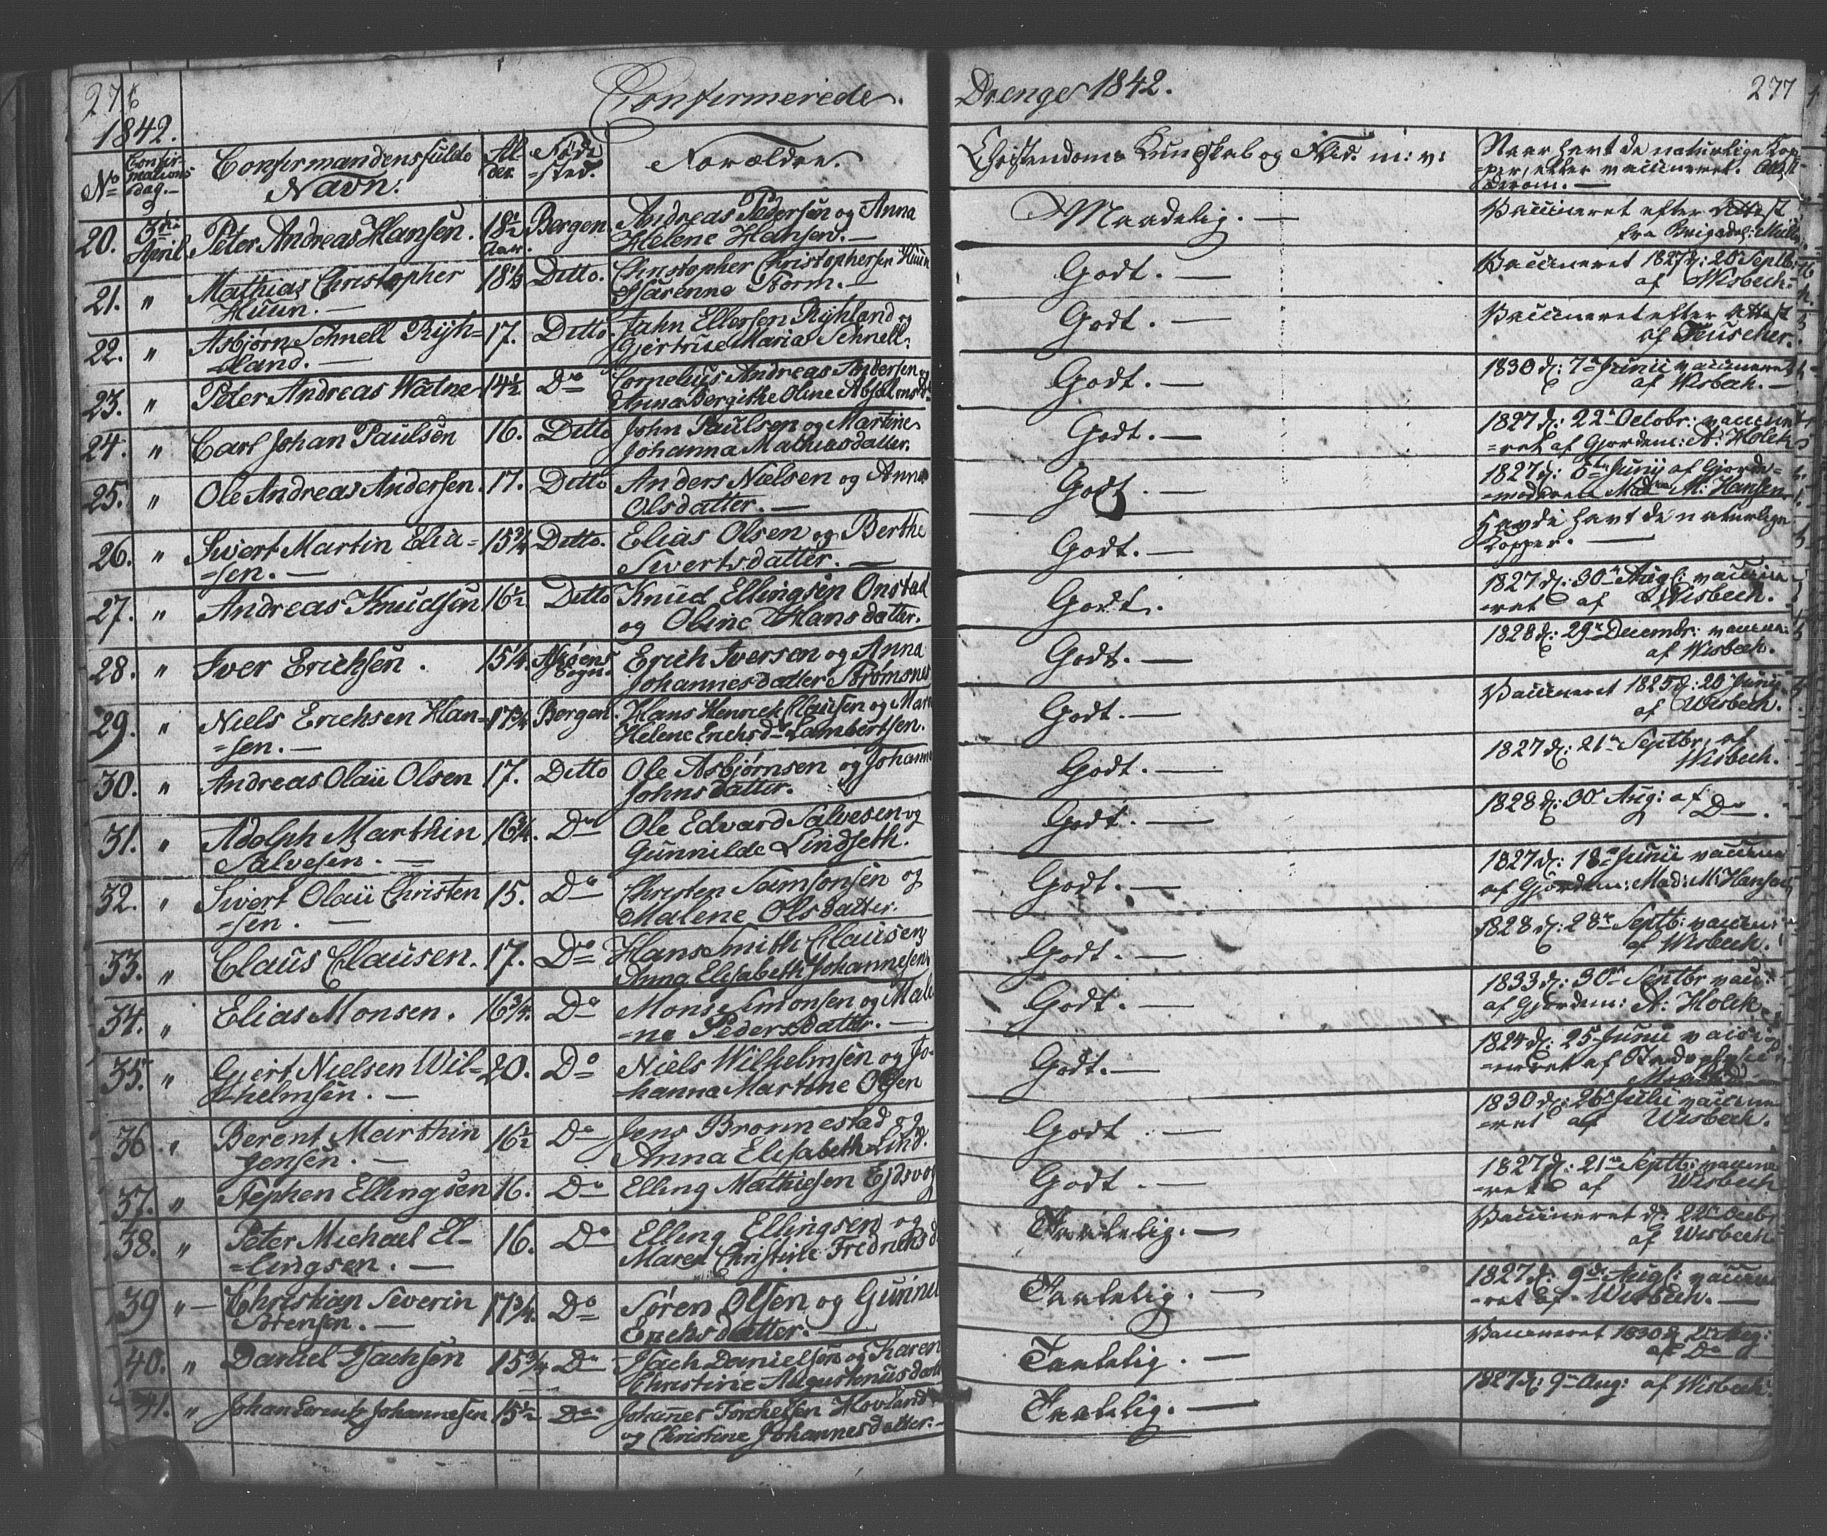 276 Confirmerede Drenge 1842. 277
1842.
No Confirmations dag. Confirmandens fulde Navn. Alder. Føde sted. Forældre. Christendoms Kundskab og Flid. m: v: Naar havt de naturlige Kop-
-per, eller vaccineret. Attest
derom.
20. 3die April Peter Andreas Hansen. 18½ Aar. Bergen Andreas Pedersen og Anna Maadelig. Vaccineret efter Attest
Helene Hansen. fra Brigadel: Müller
21. " Mathias Christopher 18½ Ditto. Christopher Christophersen Huun Godt. Vaccineret 1827 d: 20 Septbr:
Huun. Storm. af Wisbech.
22. " Asbjørn Schnell Ryh- 17. Ditto Jahn Ellersen Ryhland og Godt. Vaccineret efter Attest
-land. Gjertrue Maria Schnell. af
23. " Peter Andreas Watne 14½ Do Cornelius Andreas Andersen og Godt. 1830 d: 7de Junii vaccineret
Anna Bergithe Oline af Wisbech.
24. " Carl Johan Paulsen 16. Ditto John Paulsen og Martine Godt. 1827 d: 22de Octobr: vaccine-
Johanna Mathiasdatter. -ret af Gjordem: A: Holck
25. " Ole Andreas Andersen. 17. Ditto Anders Nielsen og Anna Godt. 1827 d: 5te Junij af Gjorde-
Olsdatter. -moderen Mad: M: Hansen
26. " Sivert Martin Elia- 15¾ Ditto. Elias Olsen og Berthe Godt. Havde havt de naturlige
-sen. Sivertsdatter. Kopper.
27. " Andreas Knudsen 16½ Ditto Knud Ellingsen Onstad Godt. 1827 d: 30te Augl: vaccine-
og Oline Hansdatter. -ret af Wisbech.
28. " Iver Erichsen. 15¼ Askøens Sogn. Erich Iversen og Anna Godt. 1828 d: 29de Decembr: vaccine:
Johannesdatter Strømsnes af Wisbech.
29. " Niels Erichsen Han- 17¾ Bergen. Hans Henrich Clausen og Godt. Vaccineret 1825 d: 20 Junij
-sen. Helene Erichsdr Lambertsen. af Wisbech.
30. " Andreas Olaii Olsen 17. Ditto Ole Asbjørnsen og Johanne Godt. 1827 d: 21de Septbr af
Johnsdatter. Wisbech.
31. " Adolph Marthin 16¾. Do Ole Edvard Salvesen og Godt. 1828 d: 30te Aug: af Do
Salvesen. Gunnilde Lindseth.
32. " Sivert Olaii Christen 15. Do Christen Samsonsen og Godt. 1827 d: 18de Junii vaccine
-sen. Malene Olsdatter. af Gjordem: Mad: M: Hansen
33. " Claus Clausen. 17. Do Hans Smith Clausen og Godt. 1828 d: 28de Septb: vaccine:
Anna Elisabeth Johannesen af Wisbech.
34. " Elias Monsen. 16¾. Do Mons Simonsen og Male Godt. 1833 d: 30te Septbr vacci:
-ne Pedersdatter. af Gjordem: A: Holck
35. " Gjert Nielsen Wil- 20. Do Niels Wilhelmsen og Jo- Godt. 1824 d: 25 Junii vacci-
-helmsen. -hanna Martine Olsen -neret af
36. " Berent Marthin 16½ Do Jens Bronnestad og Godt. 1830 d: 26de Julii vaccine-
Jensen. Anna Elisabeth Lind. -ret af Wisbech.
37. " Stephen Ellingsen 16. Do Elling Mathiesen Godt. 1827 d: 21de Septb: vaccine
-ret af Wisbech
38. " Peter Michael El- 16. Do Elling Ellingsen og Taalelig. Vaccineret d: 22de Octbr
-lingsen. Maren Christine Fredrichsd af Wisbech
39 " Christian Severin 17¾. Do Søren Olsen og Gunnil Taalelig. 1827 d: 9de Augl: vaccine
Sørensen. Erichsdatter. -ret af Wisbech.
40. " Daniel Isachsen 15¾ Do Isach Danielsen og Karen Taalelig. Vaccineret 1830 d 2de Aug:
Christine Augustinusdatt af Do
41. " Johan Lorentz Johannesen 15½ Do Johannes Torchelsen Hovland Taalelig. 1827 d: 9de Aug: af Wisbech.
og Christine Johannesdatter.